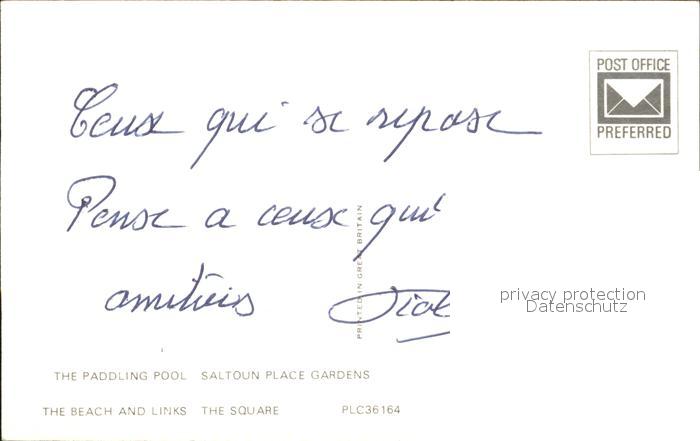 POST OFFICE
PREFERRED
Ceux qui se repose
Pense a ceux qui
amitiéis
PRINTED IN GREAT BRITAIN
privacy protection
Datenschutz
THE PADDLING POOL SALTOUN PLACE GARDENS
THE BEACH AND LINKS THE SQUARE PLC36164